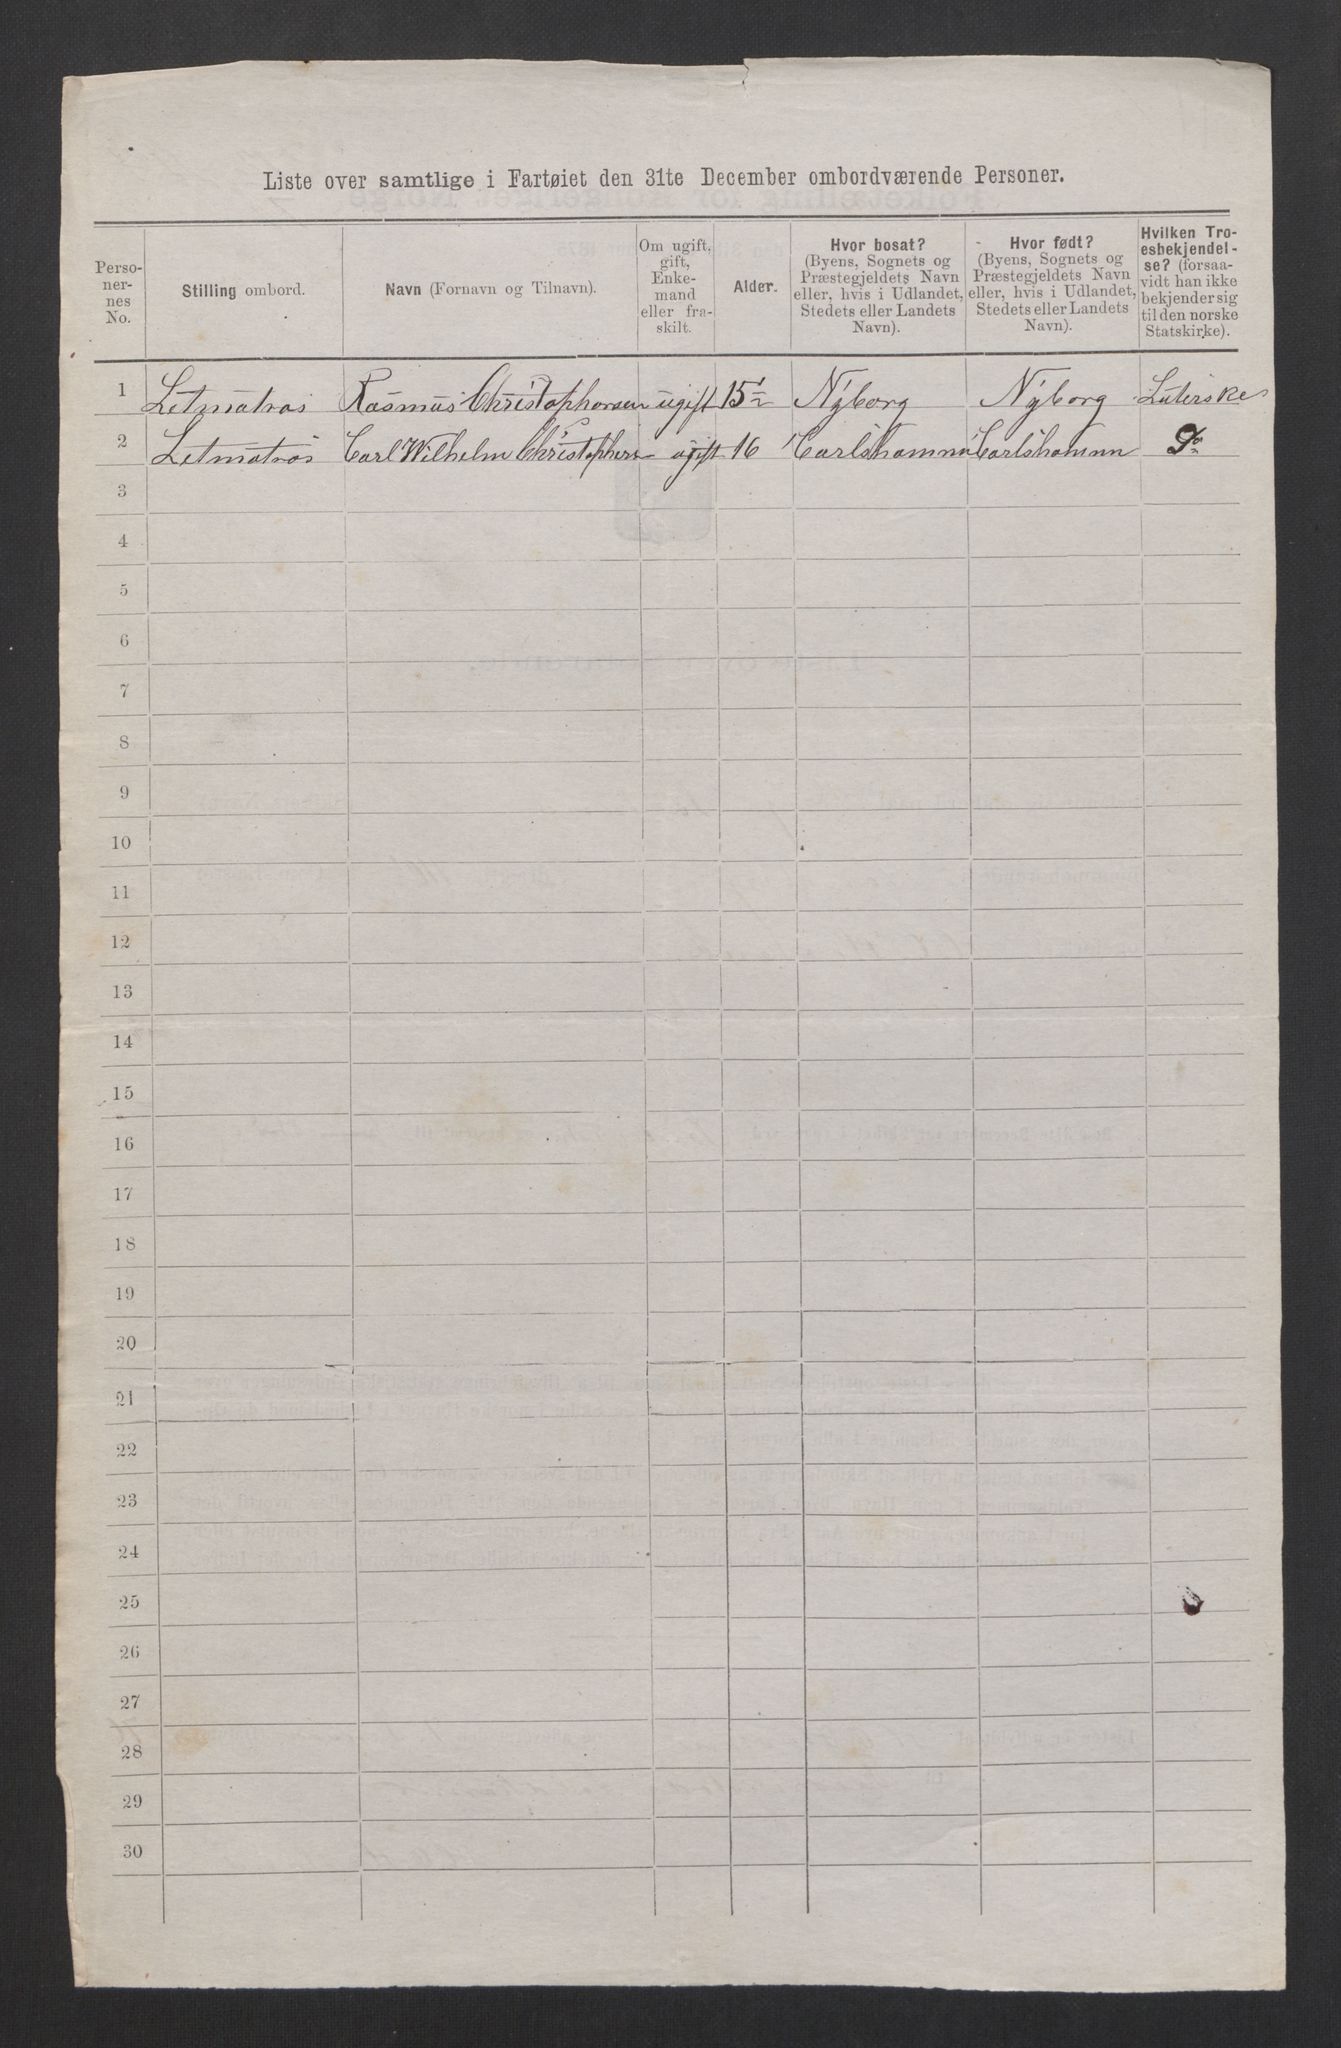 Liste over samtlige i Fartøiet den 31te December ombordværende Personer.
Perso-
ner-
nes
No.
Stilling ombord.
Navn (Fornavn og Tilnavn).
Om ugift,
gift,
Enke-
mand
eller fra-
skilt.
Alder.
Hvor bosat?
(Byens, Sognets og
Præstegjeldets Navn
eller, hvis i Udlandet,
Stedets eller Landets
Navn).
Hvor født?
(Byens, Sognets og
Præstegjeldets Navn
eller, hvis i Udlandet,
Stedets eller Landets
Navn).
Hvilken Tro-
esbekjendel-
se? (forsaa-
vidt han ikke
bekjender sig
til den norske
Statskirke).
1 Letmatros Rasmus Christophersen ugift 15 Nÿborg Nÿborg Luterske
2 Letmatros Carl Wilhelm Christophers ugift 16 Carlshamnn Carlshamnn Do
3
4
5
6
7
8
9
10
11
12
13
14
15
16
17
18
19
20
21
22
23
24
25
26
27
28
29
30